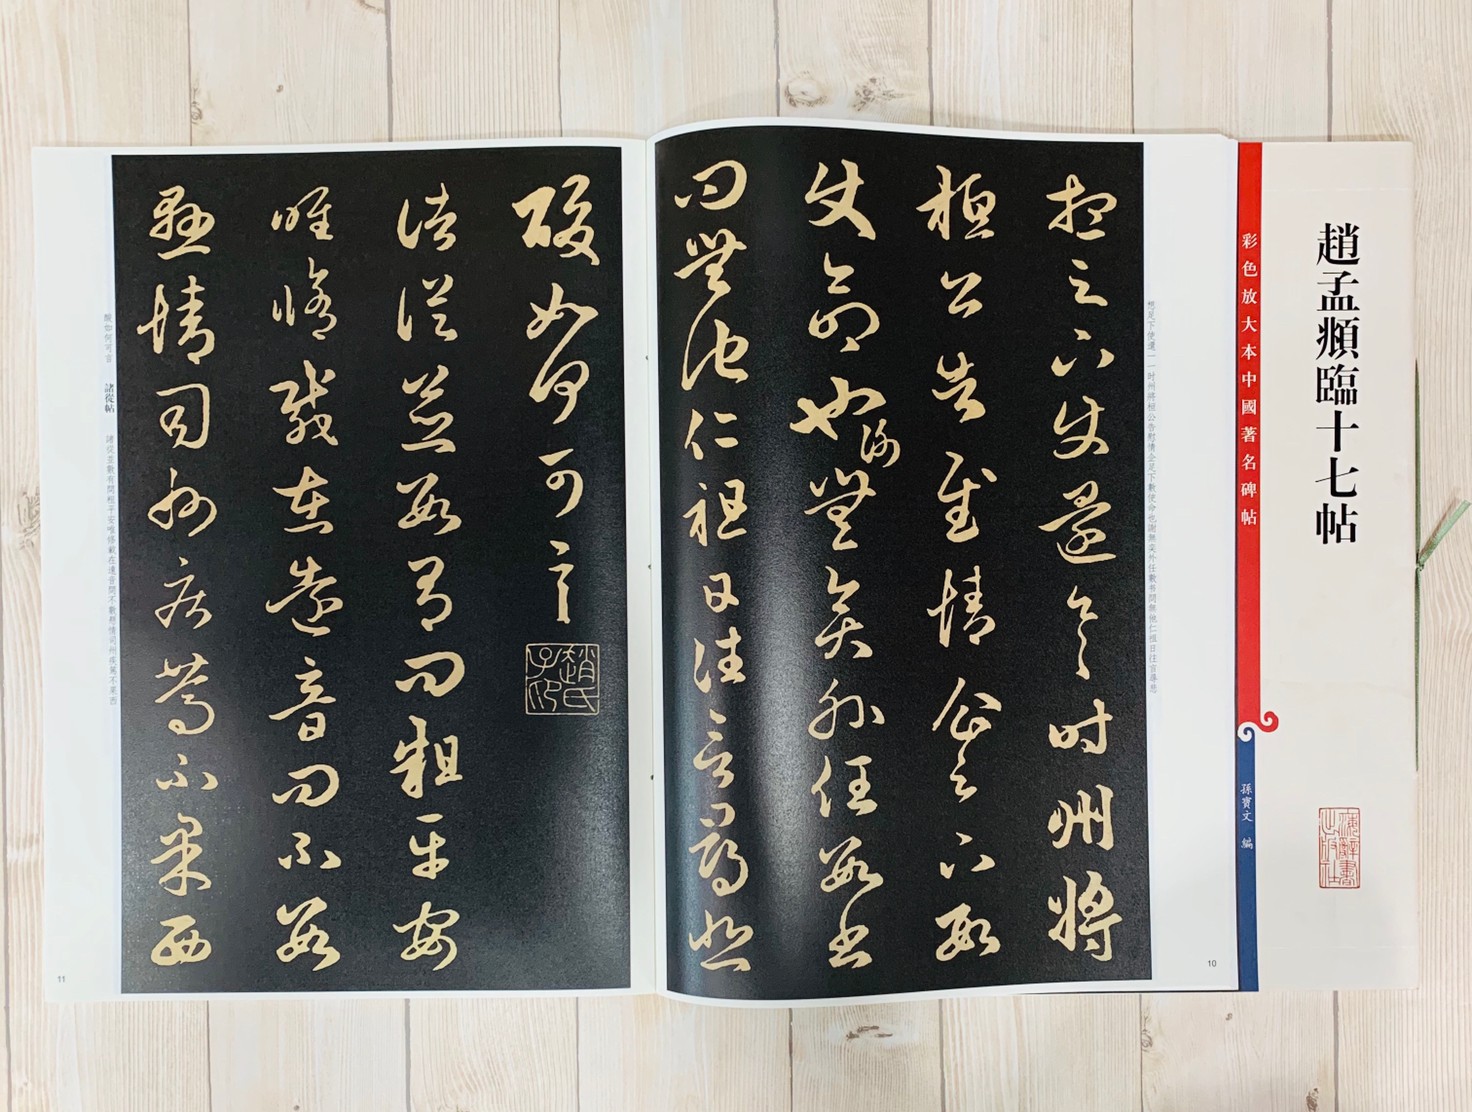 趙孟頫臨十七帖
彩色放大本中國著名碑帖
孫寶文 編
想足下使還一一時州將桓公告慰情企足下數使命也謝無奕外任數书問無他仁祖日往言尋悲
想足下使還一一時州將
桓公告慰情企足下數
使命也謝無奕外任數書
問無他仁祖日往言尋悲
10
酸如何可言
趙氏子昂
諸從並數有問粗平安
唯脩載在遠音問不數
懸情司州疾篤不果西
酸如何可言 諸從帖 諸從並數有問粗平安唯修載在遠音問不數懸情司州疾篤不果西
11